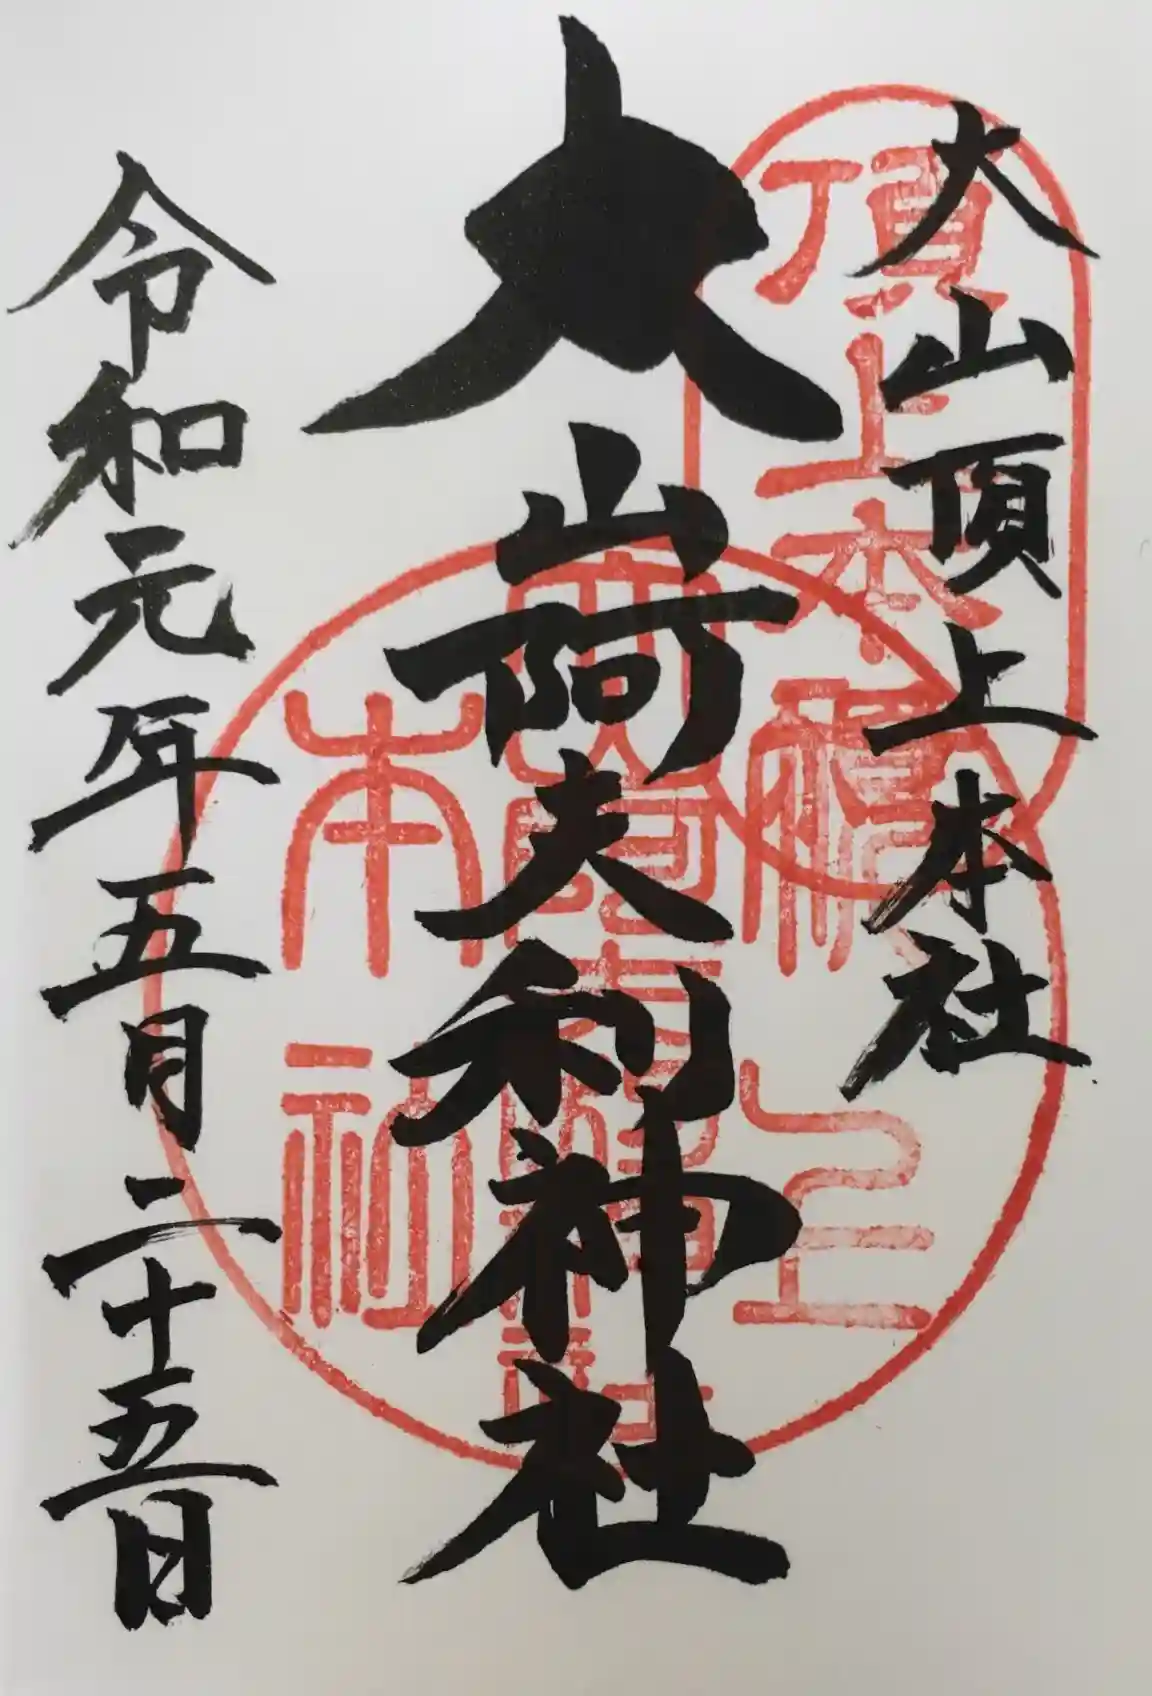 大山頂上本社
大山阿夫利神社
令和元年五月二十五日
頂上本
本社